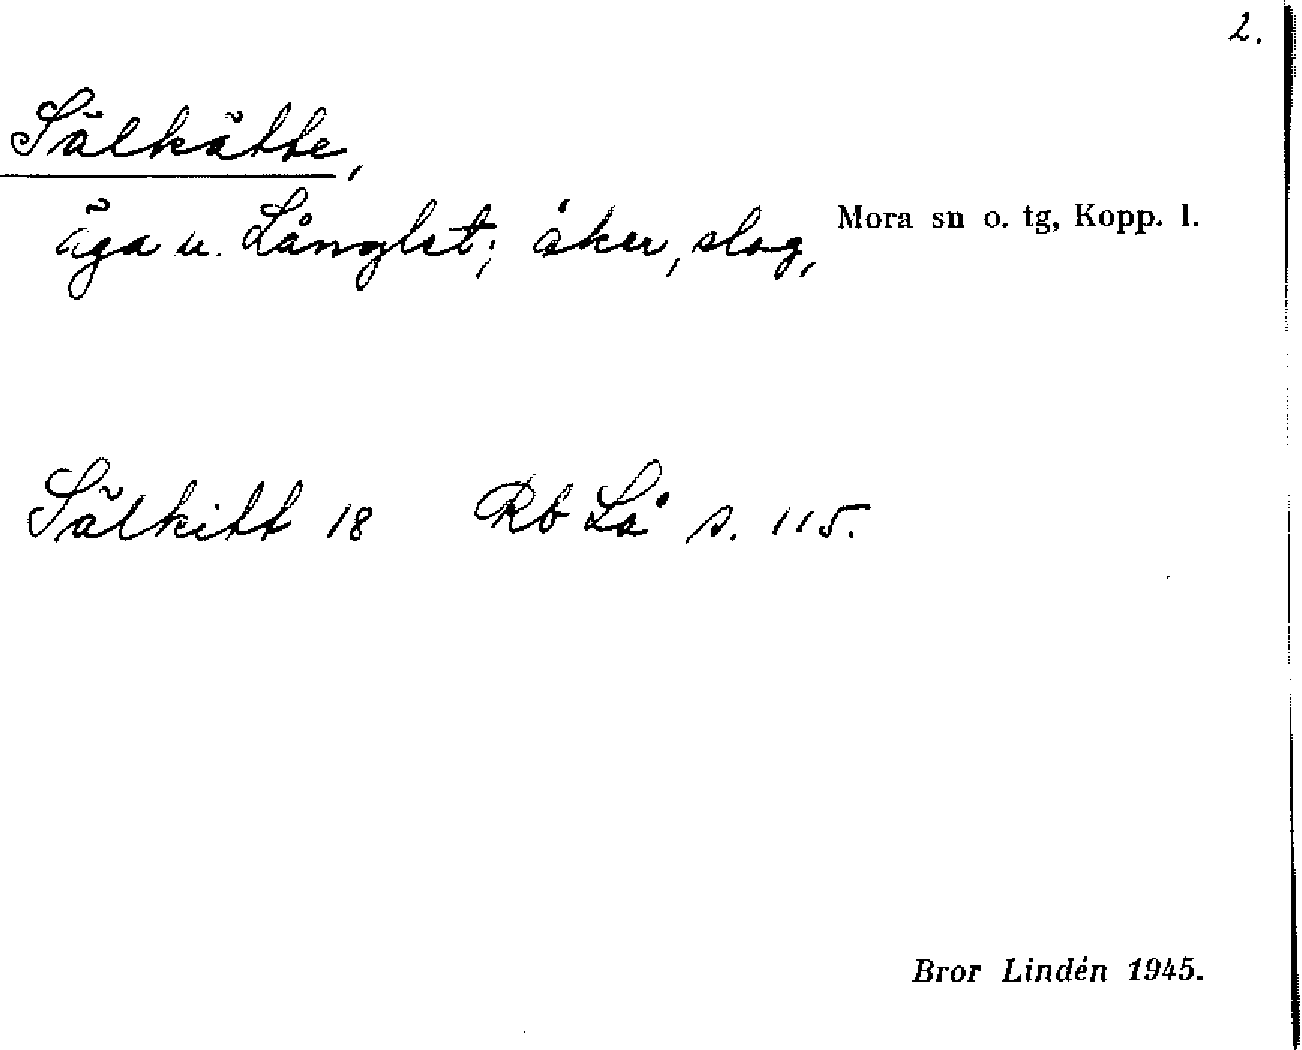 2.
Sälkätte,
äga u. Långlet; åker, slog,
Mora sn o. tg, Kopp. l.
Sälkitt 18 Rb Lå s. 115.
Bror Lindén 1945.